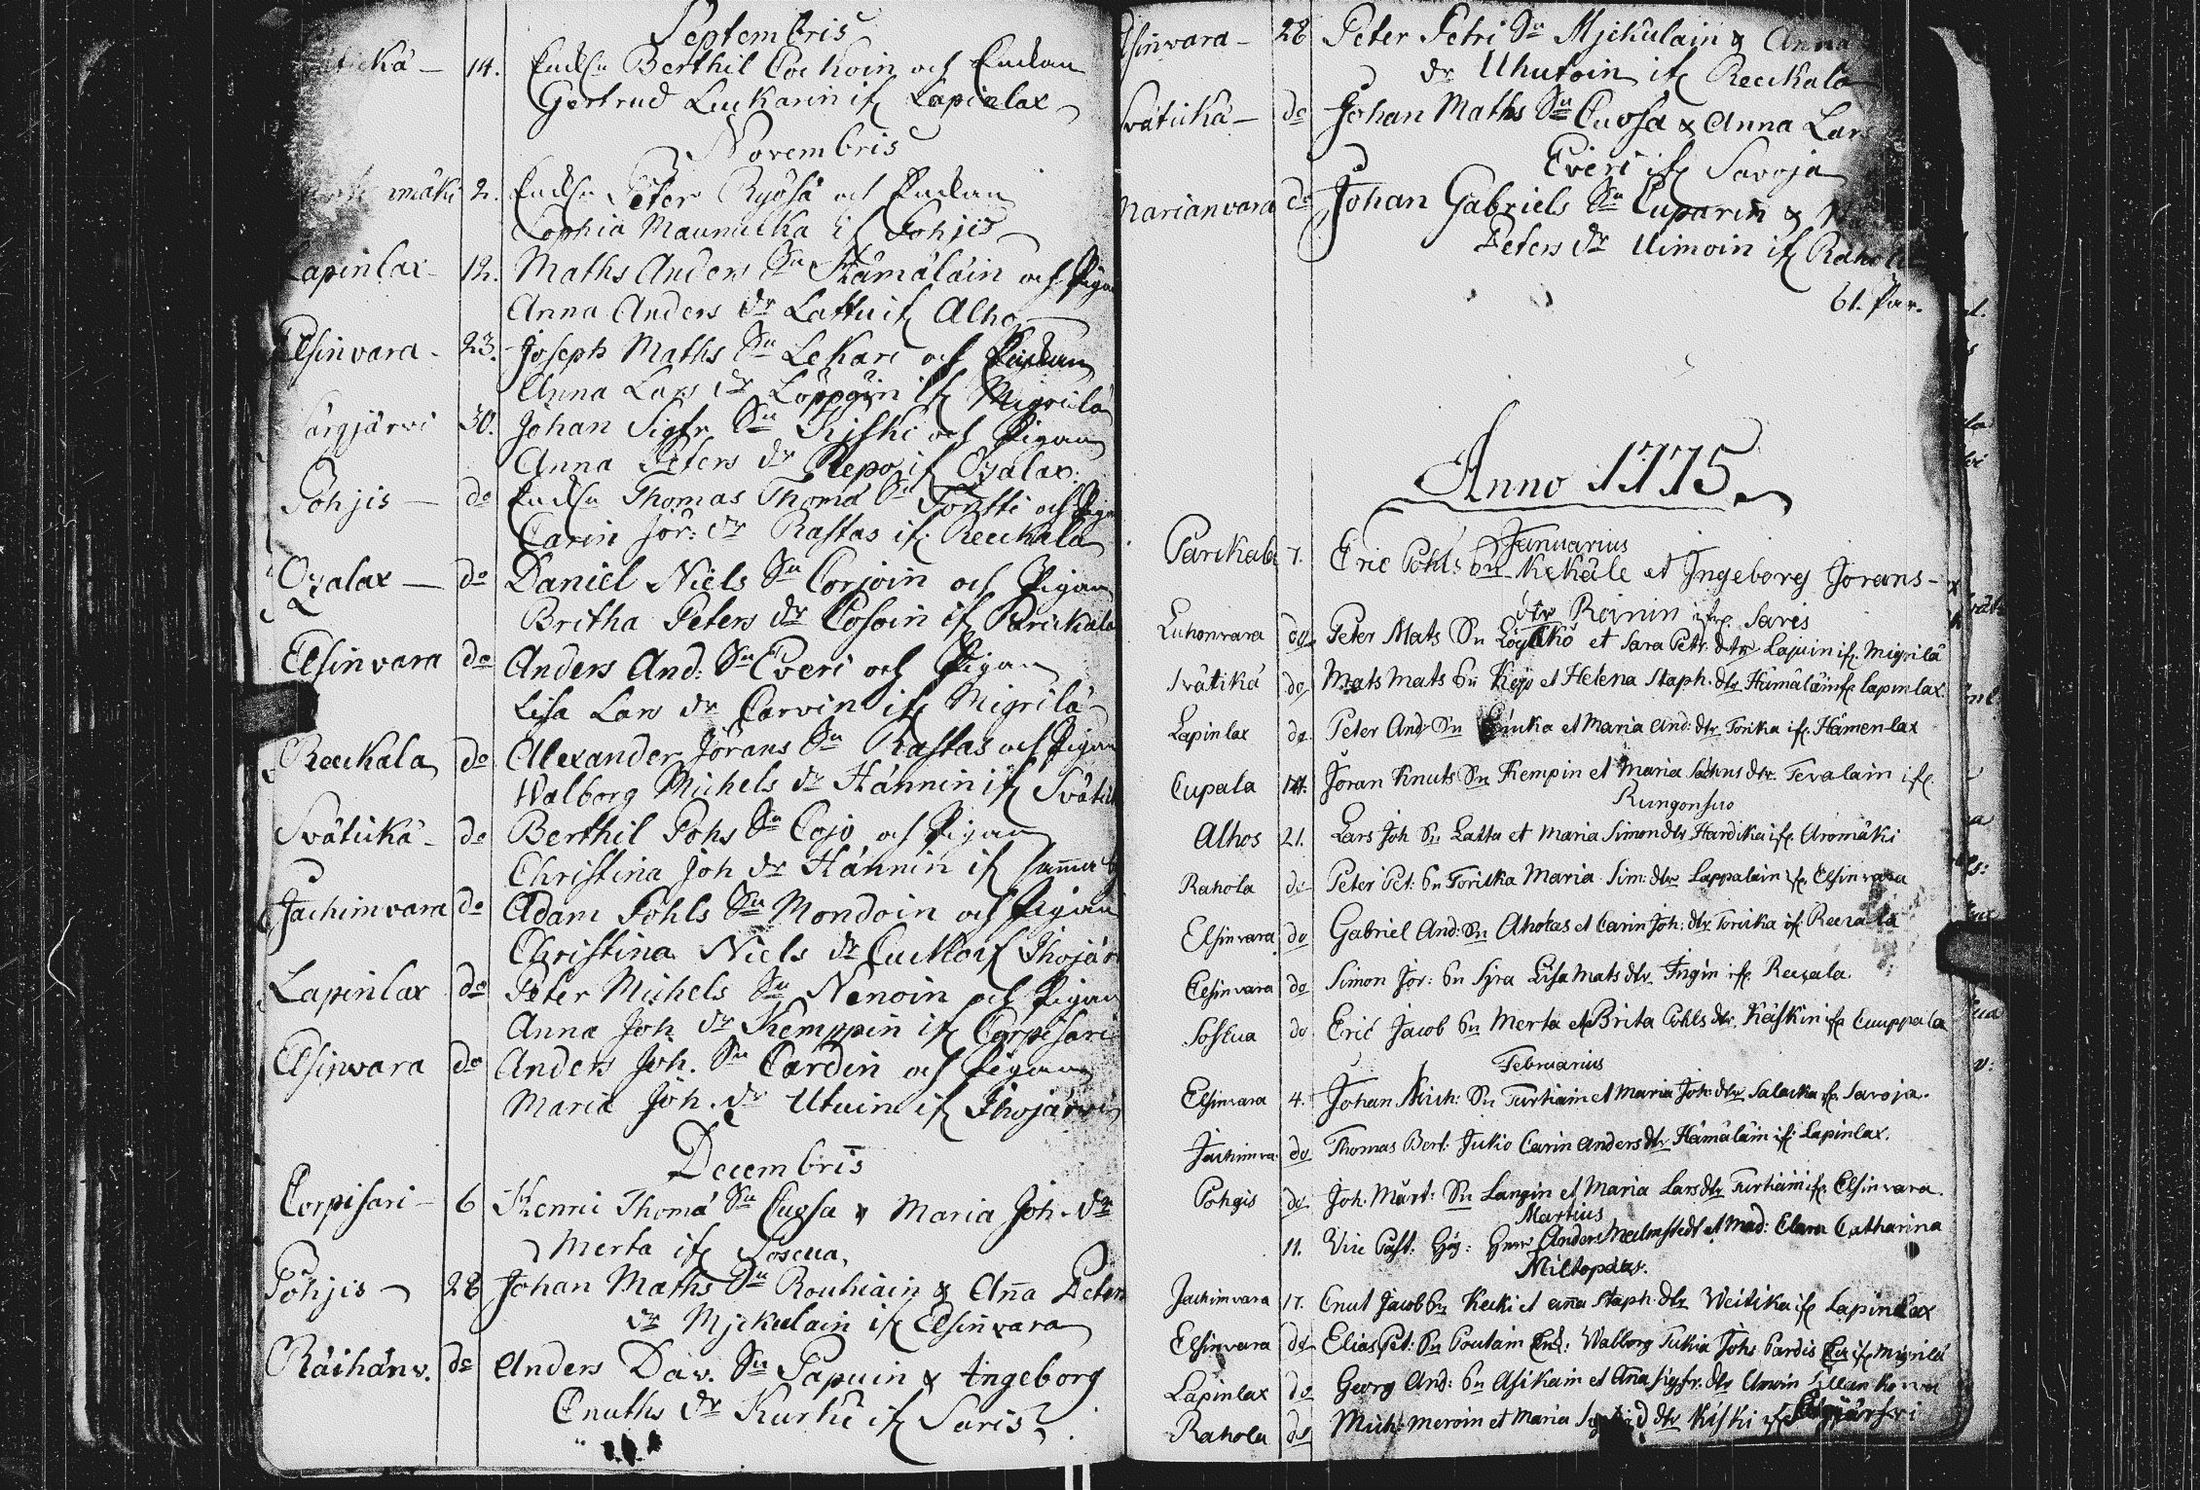 Septembris
14. Enckln Berthil Cockoin och Enckan
Gertrud Luckarin if Lapinlax
Novembris
2. Enckln Peter Ryösä och Enckan
Sophia Maunulka if Pohjis
Lapinlax 12. Maths Anders Sn Hämäläin och Pigan
Anna Anders dr Lattu if Alho
Elsinvara 23. Joseph Maths Sn Lekari och Enckan
Anna Lars dr Löppöin if Migrilä
30. Johan Sigfr. Sn Kiski och Pigan
Anna Peters dr Repo if Ozalax
Pohjis do Enckln Thomas Thoma Sn Tontti och Pigan
Carin Jör: dr Rastas if Reeckala
Ozalax do Daniel Niels Sn Corjoin och Pigan
Britha Peters dr Cosoin if Parickala
Elsinvara do Anders And: Sn Everi och Pigan
Lisa Lars dr Carvin if Migrilä
Reeckala do Alexander Jörans Sn Rastas och Pigan
Walborg Michels dr Hännin if
Svätickä do Berthil Pohs Sn Cojo och Pigan
Christina Joh dr Hännin if
Jachimvara do Adam Pohls Sn Mondoin och Pigan
Christina Niels dr Cucko if
Lapinlax do Peter Michels Sn Nenoin och Pigan
Anna Joh dr Kemppin if Corpisari
Elsinvara do Anders Joh. Sn Cardin och Pigan
Maria Joh. dr Utuin if Ihojärvi
Decembris
Corpisari 6 Henric Thoma Sn Cuosa & Maria Joh. dr
Merta if Soscua
Pohjis 28 Johan Maths Sn Rouhiain & Ana Peters
dr Mjekulain if Elsinvara
Räihänv. do Anders Dav. Sn Papuin & Ingeborg
Cnuths dr Kurki if Saris
Elsinvara 28 Peter Petri Sn Mjekulain & Anna
dr Uhutoin if Reeckala
Svätickä do Johan Maths Sn Cuosa & Anna Lars
Everi if Savoja
Narianvara do Johan Gabriels Sn Cuparin &
Peters dr Uimoin if Rahola
61. Par.
Anno 1775
Januarius
Parikala 7. Eric Pohls Sn Kekäle et Ingeborg Jorans
dtr Reinin if Saris
Luhonvara do Peter Mats Sn et Sara Petr. dtr Lapuin if Migrilä
Svätikä do Mats Mats Sn Kojo et Helena Staph. dtr Hämäläin if Lapinlax
Lapinlax do Peter And Sn et Maria And: dtr Torika if Hämenlax
Cupala 14. Joran Knuts Sn Kempin et Maria dtr. Tevalain if
Rungonsuo
Alhos 21. Lars Joh Sn Lattu et Maria Simon dtr Hardika if Aromäki
Rahola do Peter Pet: Sn Toritka Maria Sim: dtr Lappalain if Elsinvara
Elsinvara do Gabriel And: Sn Ahokas et Carin Joh: dtr Toricka if
Elsinvara do Simon Jör: Sn Sjra Lisa Mats dtr Ingin if
Soskua do Eric Jacob Sn Merta et Brita Pohls dtr Käskin if Cuuppala
Februarius
Elsinvara 4. Johan Mich: Sn Turtiain et Maria Joh: dtr Salacka if Savoja.
Jachimva: do Thomas Bert: Jukio Carin Anders dtr Hämäläin if: Lapinlax.
Pohgis do Joh. Mårt: Sn Langin et Maria Lars dtr Turtiain if Elsinvara.
Martius
11. Vice Past: Herr Anders Malmstedt et Mad: Clara Catharina
Miltopæus.
Jachimvara 17. Cnut Jacob Sn Kecki et Ana Staph. dtr Weitika if Lapinlax
Elsinvara do Elias Pet: Sn Poutain Enk: Walborg Tukia Johs Pardis if Migrilä
Lapinlax do Georg And: Sn Asikain et Ana Sigfr. dtr
Rahola do Mich: Meroin et Maria dtr Kiski if